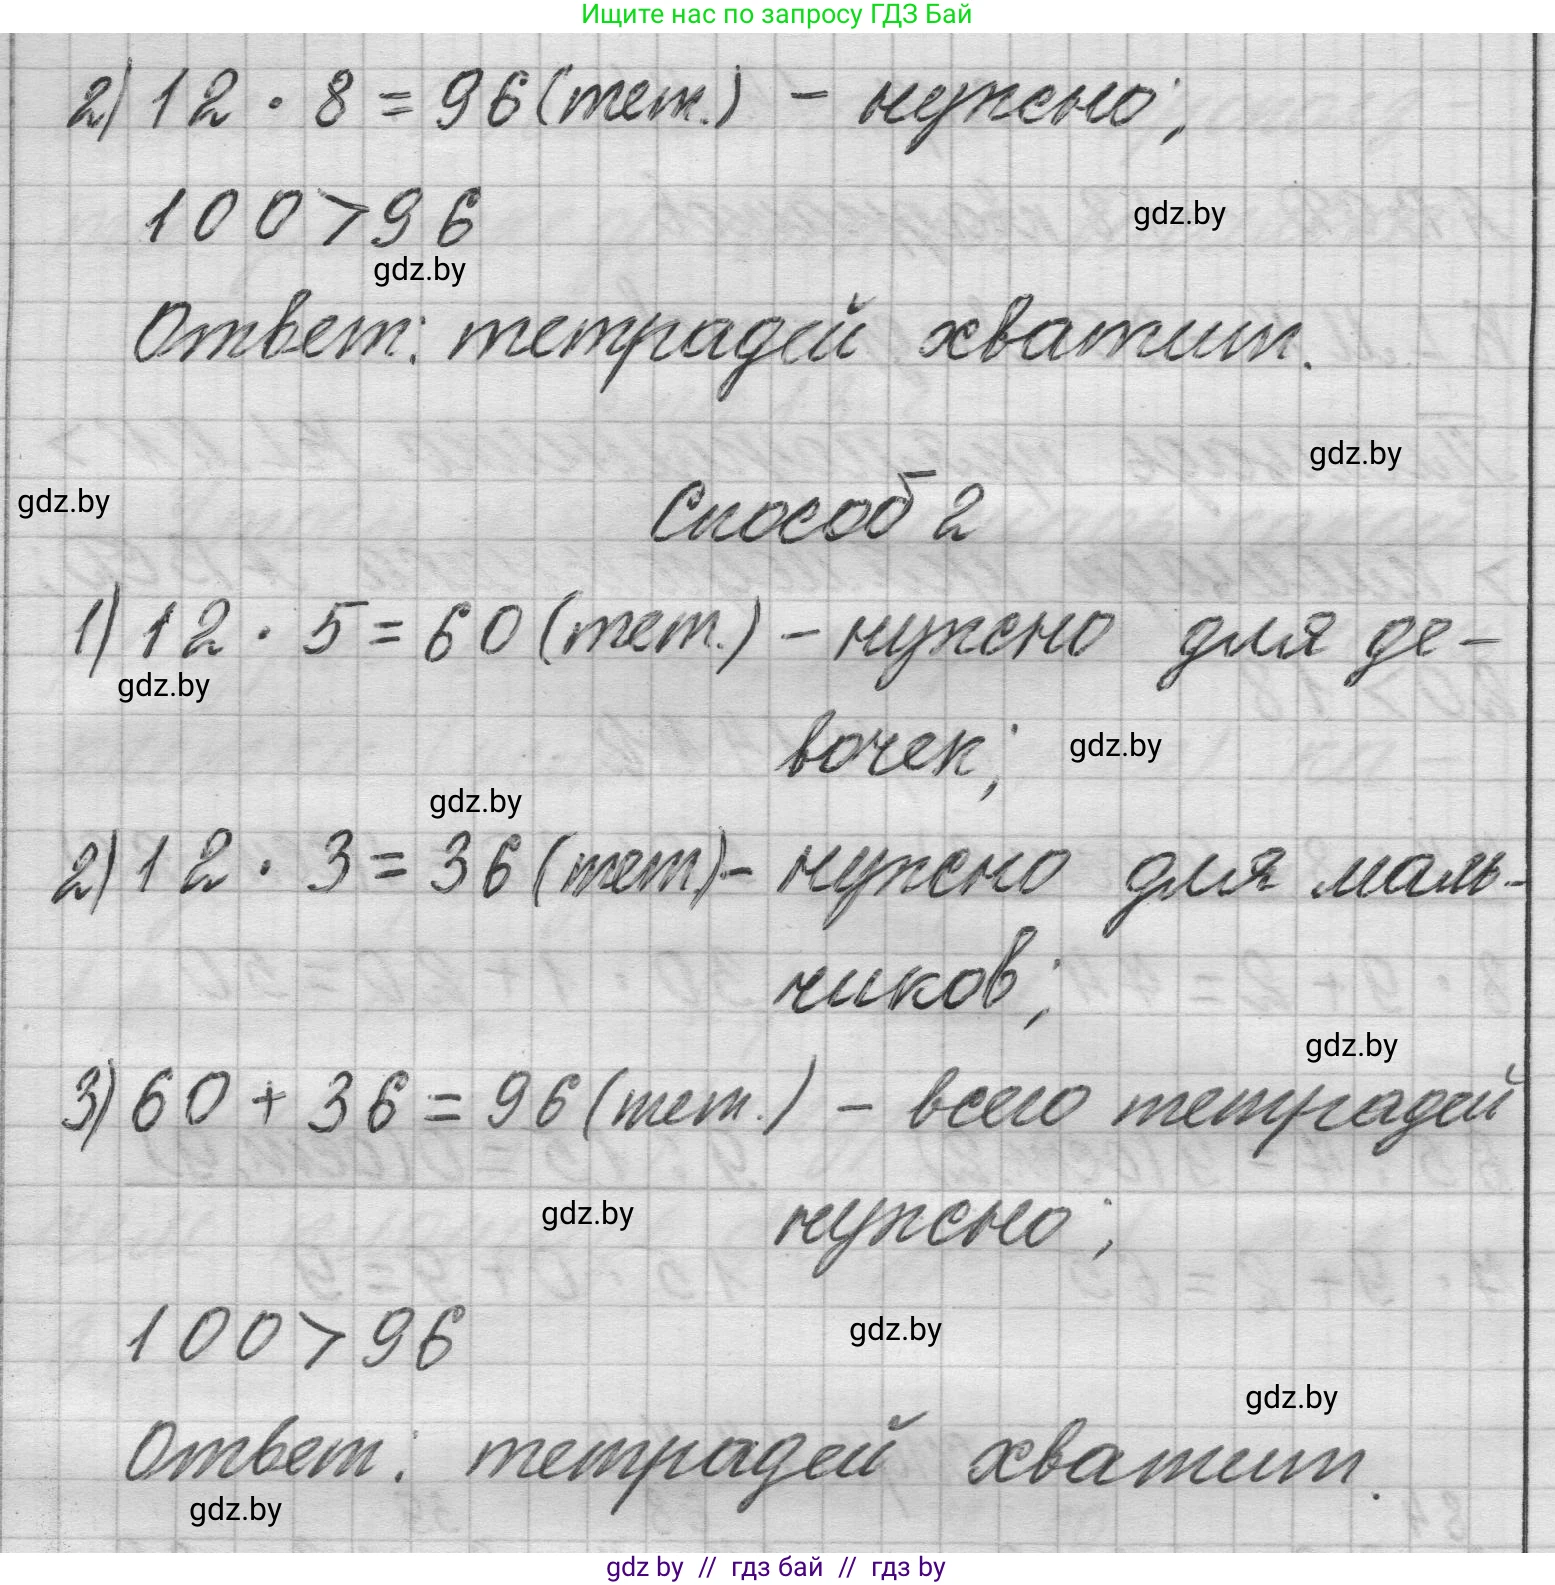 Ищите нас по запросу ГДЗ Бай
2) 12 · 8 = 96 (тет.) - нужно;
100 > 96
gdz.by
gdz.by
Ответ: тетрадей хватит.
gdz.by
gdz.by
Способ 2
1) 12 · 5 = 60 (тет.) - нужно для де-
gdz.by
вочек;
gdz.by
gdz.by
2) 12 · 3 = 36 (тет.) - нужно для маль-
чиков;
gdz.by
3) 60 + 36 = 96 (тет.) - всего тетрадей
gdz.by
нужно;
100 > 96
gdz.by
gdz.by
Ответ: тетрадей хватит.
gdz.by
gdz by // гдз бай // гдз by